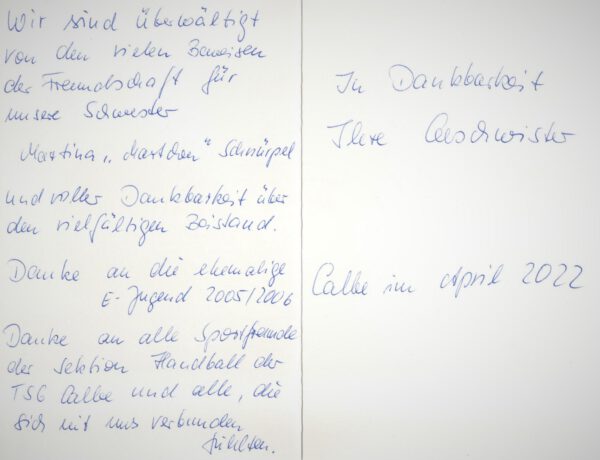 Wir sind überwältigt
von den vielen Beweisen
der Freundschaft für
unsere Schwester
Martina „Martchen" Schnürpel
und voller Dankbarkeit über
den vielfältigen Beistand.
Danke an die ehemalige
E-Jugend 2005/2006
Danke an alle Sportfreunde
der Sektion Handball der
TSG Calbe und alle, die
sich mit uns verbunden
fühlten.
In Dankbarkeit
Ihre Geschwister
Calbe im April 2022